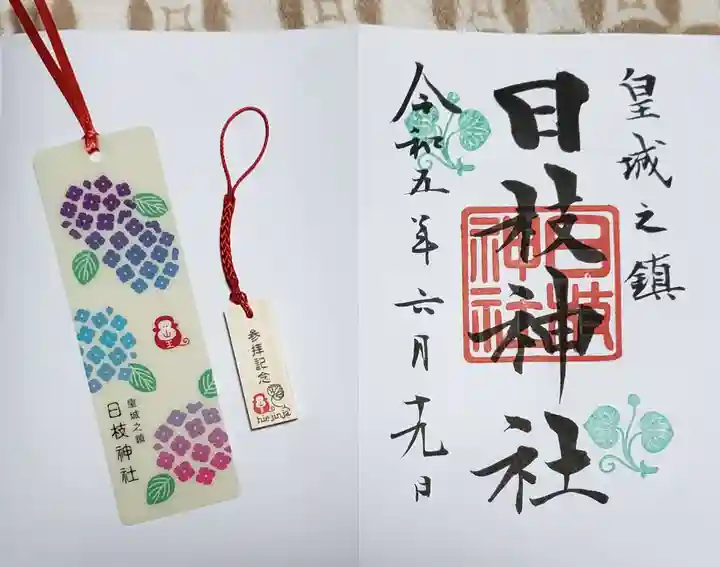 皇城之鎮
日枝神社
令和五年六月十九日
日枝
神社
皇城之鎮
日枝神社
山王
参拝記念
hie jinja